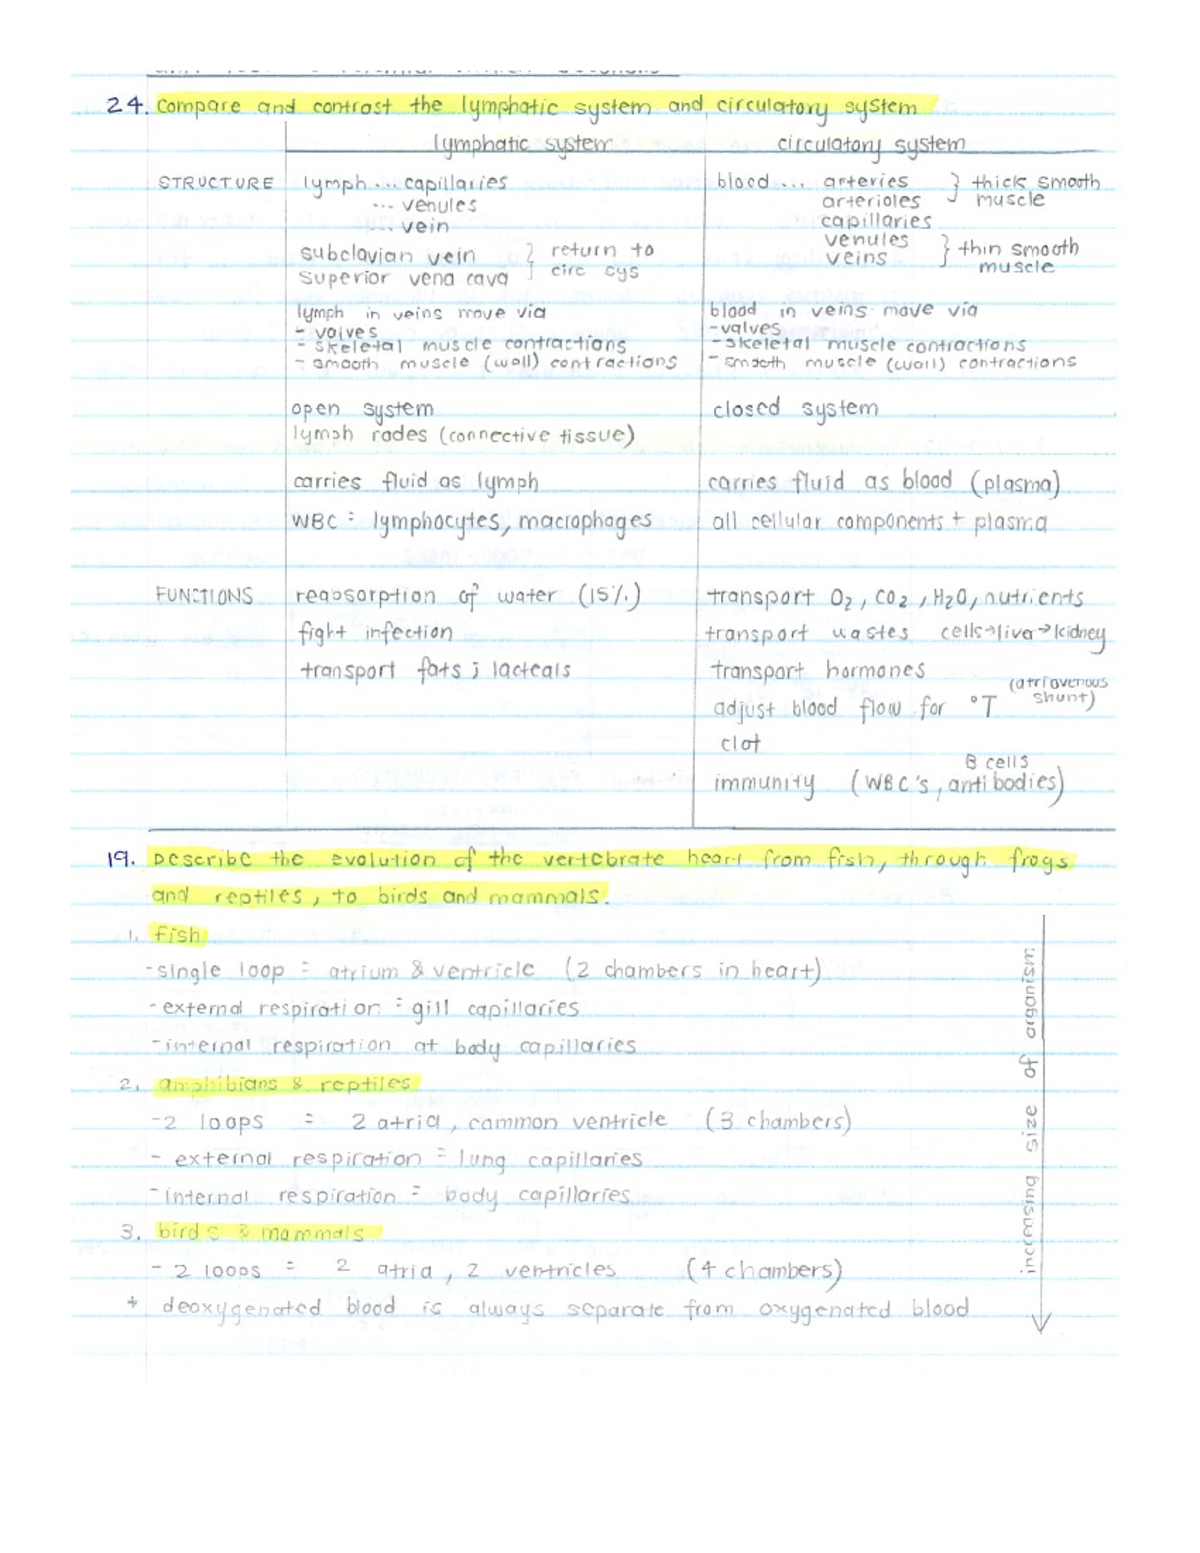 24. Compare and contrast the lymphatic system and circulatory system
lymphatic system circulatory system
STRUCTURE lymph ... capillaries blood ... arteries } thick smooth
... venules arterioles muscle
... vein capillaries
subclavian vein } return to venules } thin smooth
superior vena cava circ sys veins muscle
lymph in veins move via blood in veins move via
- valves - valves
- skeletal muscle contractions - skeletal muscle contractions
- smooth muscle (wall) contractions - smooth muscle (wall) contractions
open system closed system
lymph nodes (connective tissue)
carries fluid as lymph carries fluid as blood (plasma)
WBC = lymphocytes, macrophages all cellular components + plasma
FUNCTIONS reabsorption of water (15%) transport O₂, CO₂, H₂O, nutrients
fight infection transport wastes cells→liva→kidney
transport fats ; lacteals transport hormones
adjust blood flow for °T (atriovenous shunt)
clot
B cells
immunity (WBC's, antibodies)
19. Describe the evolution of the vertebrate heart from fish, through frogs
and reptiles, to birds and mammals.
1. fish
- single loop = atrium & ventricle (2 chambers in heart)
- external respiration = gill capillaries
- internal respiration at body capillaries
2. amphibians & reptiles
- 2 loops = 2 atria, common ventricle (3 chambers)
- external respiration = lung capillaries
- internal respiration = body capillaries
3. birds & mammals
- 2 loops = 2 atria, 2 ventricles (4 chambers)
* deoxygenated blood is always separate from oxygenated blood
increasing size of organism